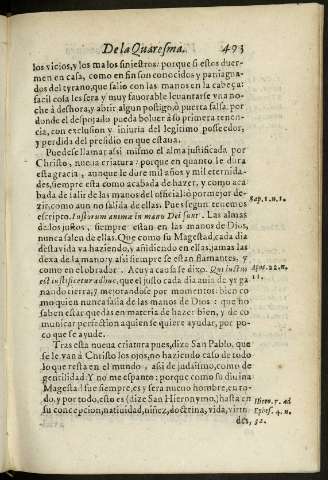 De la Quaresma. 493
los vicios, y los malos siniestros: porque si estos duer-
men en casa, como en fin son conocidos y paniagua-
dos del tyrano, que salio con las manos en la cabeça:
facil cosa les sera y muy fauorable leuantarse vna no-
che à deshora, y abrir algun postigo, ò puerta falsa, por
donde el despojado pueda boluer à su primera tenen-
cia, con exclusion y iniuria del legitimo posseedor,
y perdida del presidio en que estaua.
Puedese llamar assi mismo el alma justificada por
Christo, nueua criatura: porque en quanto le dura
esta gracia, aunque le dure mil años y mil eternida-
des, siempre esta como acabada de hazer, y como aca-
bada de salir de las manos del official: ò por mejor de-
zir, como aun no salida de ellas. Pues segun tenemos
escripto. Iustorum animæ in manu Dei sunt. Las almas
de los justos, siempre estan en las manos de Dios,
nunca salen de ellas. Que como su Magestad, cada dia
desta vida va haziendo, y añidiendo en ellas, jamas las
dexa de la mano: y assi siempre se estan flamantes, y
como en el obrador. A cuya causa se dixo. Qui iustus
est iustificetur adhuc, que el justo cada dia aun de yr ga-
nando tierra, y mejorandose por momentos: bien co-
mo quien nunca salia de las manos de Dios: que no
saben estar quedas en materia de hazer bien, y de co-
municar perfection aquien se quiere ayudar, por po-
co que se ayude.
Tras esta nueua criatura pues, dize San Pablo, que
se le van à Christo los ojos, no haziendo caso de todo
lo que resta en el mundo, assi de judaismo, como de
gentilidad. Y no me espanto: porque como su diuina
Magestad fue siempre, es y sera nueuo hombre, en to-
do, y por todo, esto es (dize San Hieronymo,) hasta en
su concepcion, natiuidad, niñez, doctrina, vida, virtu-
des,
Sap. 3. n. 1.
Apoc. 22. n.
11.
Hiero. 5. ad
Ephes. 4. n.
32.